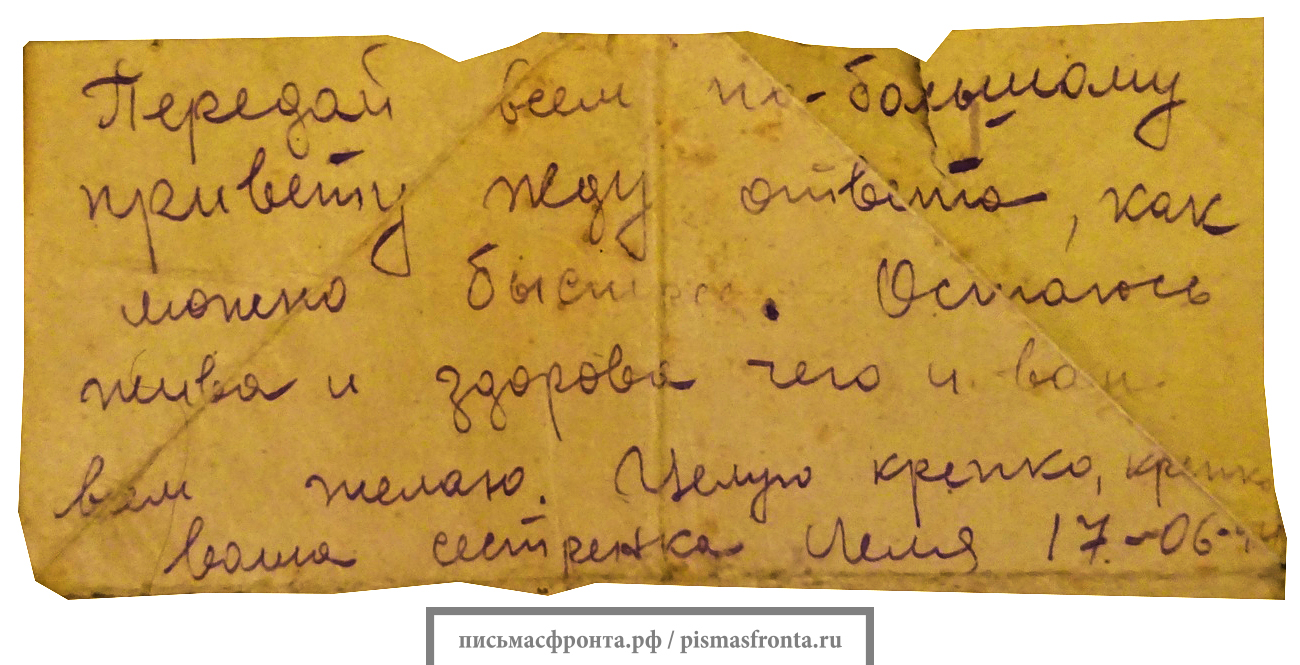 Передай всем по-большому
привету жду ответа, как
можно быстрее. Остаюсь
жива и здорова чего и вам
всем желаю. Целую крепко, крепко
ваша сестренка Леля 17-06-44
письмасфронта.рф / pismasfronta.ru